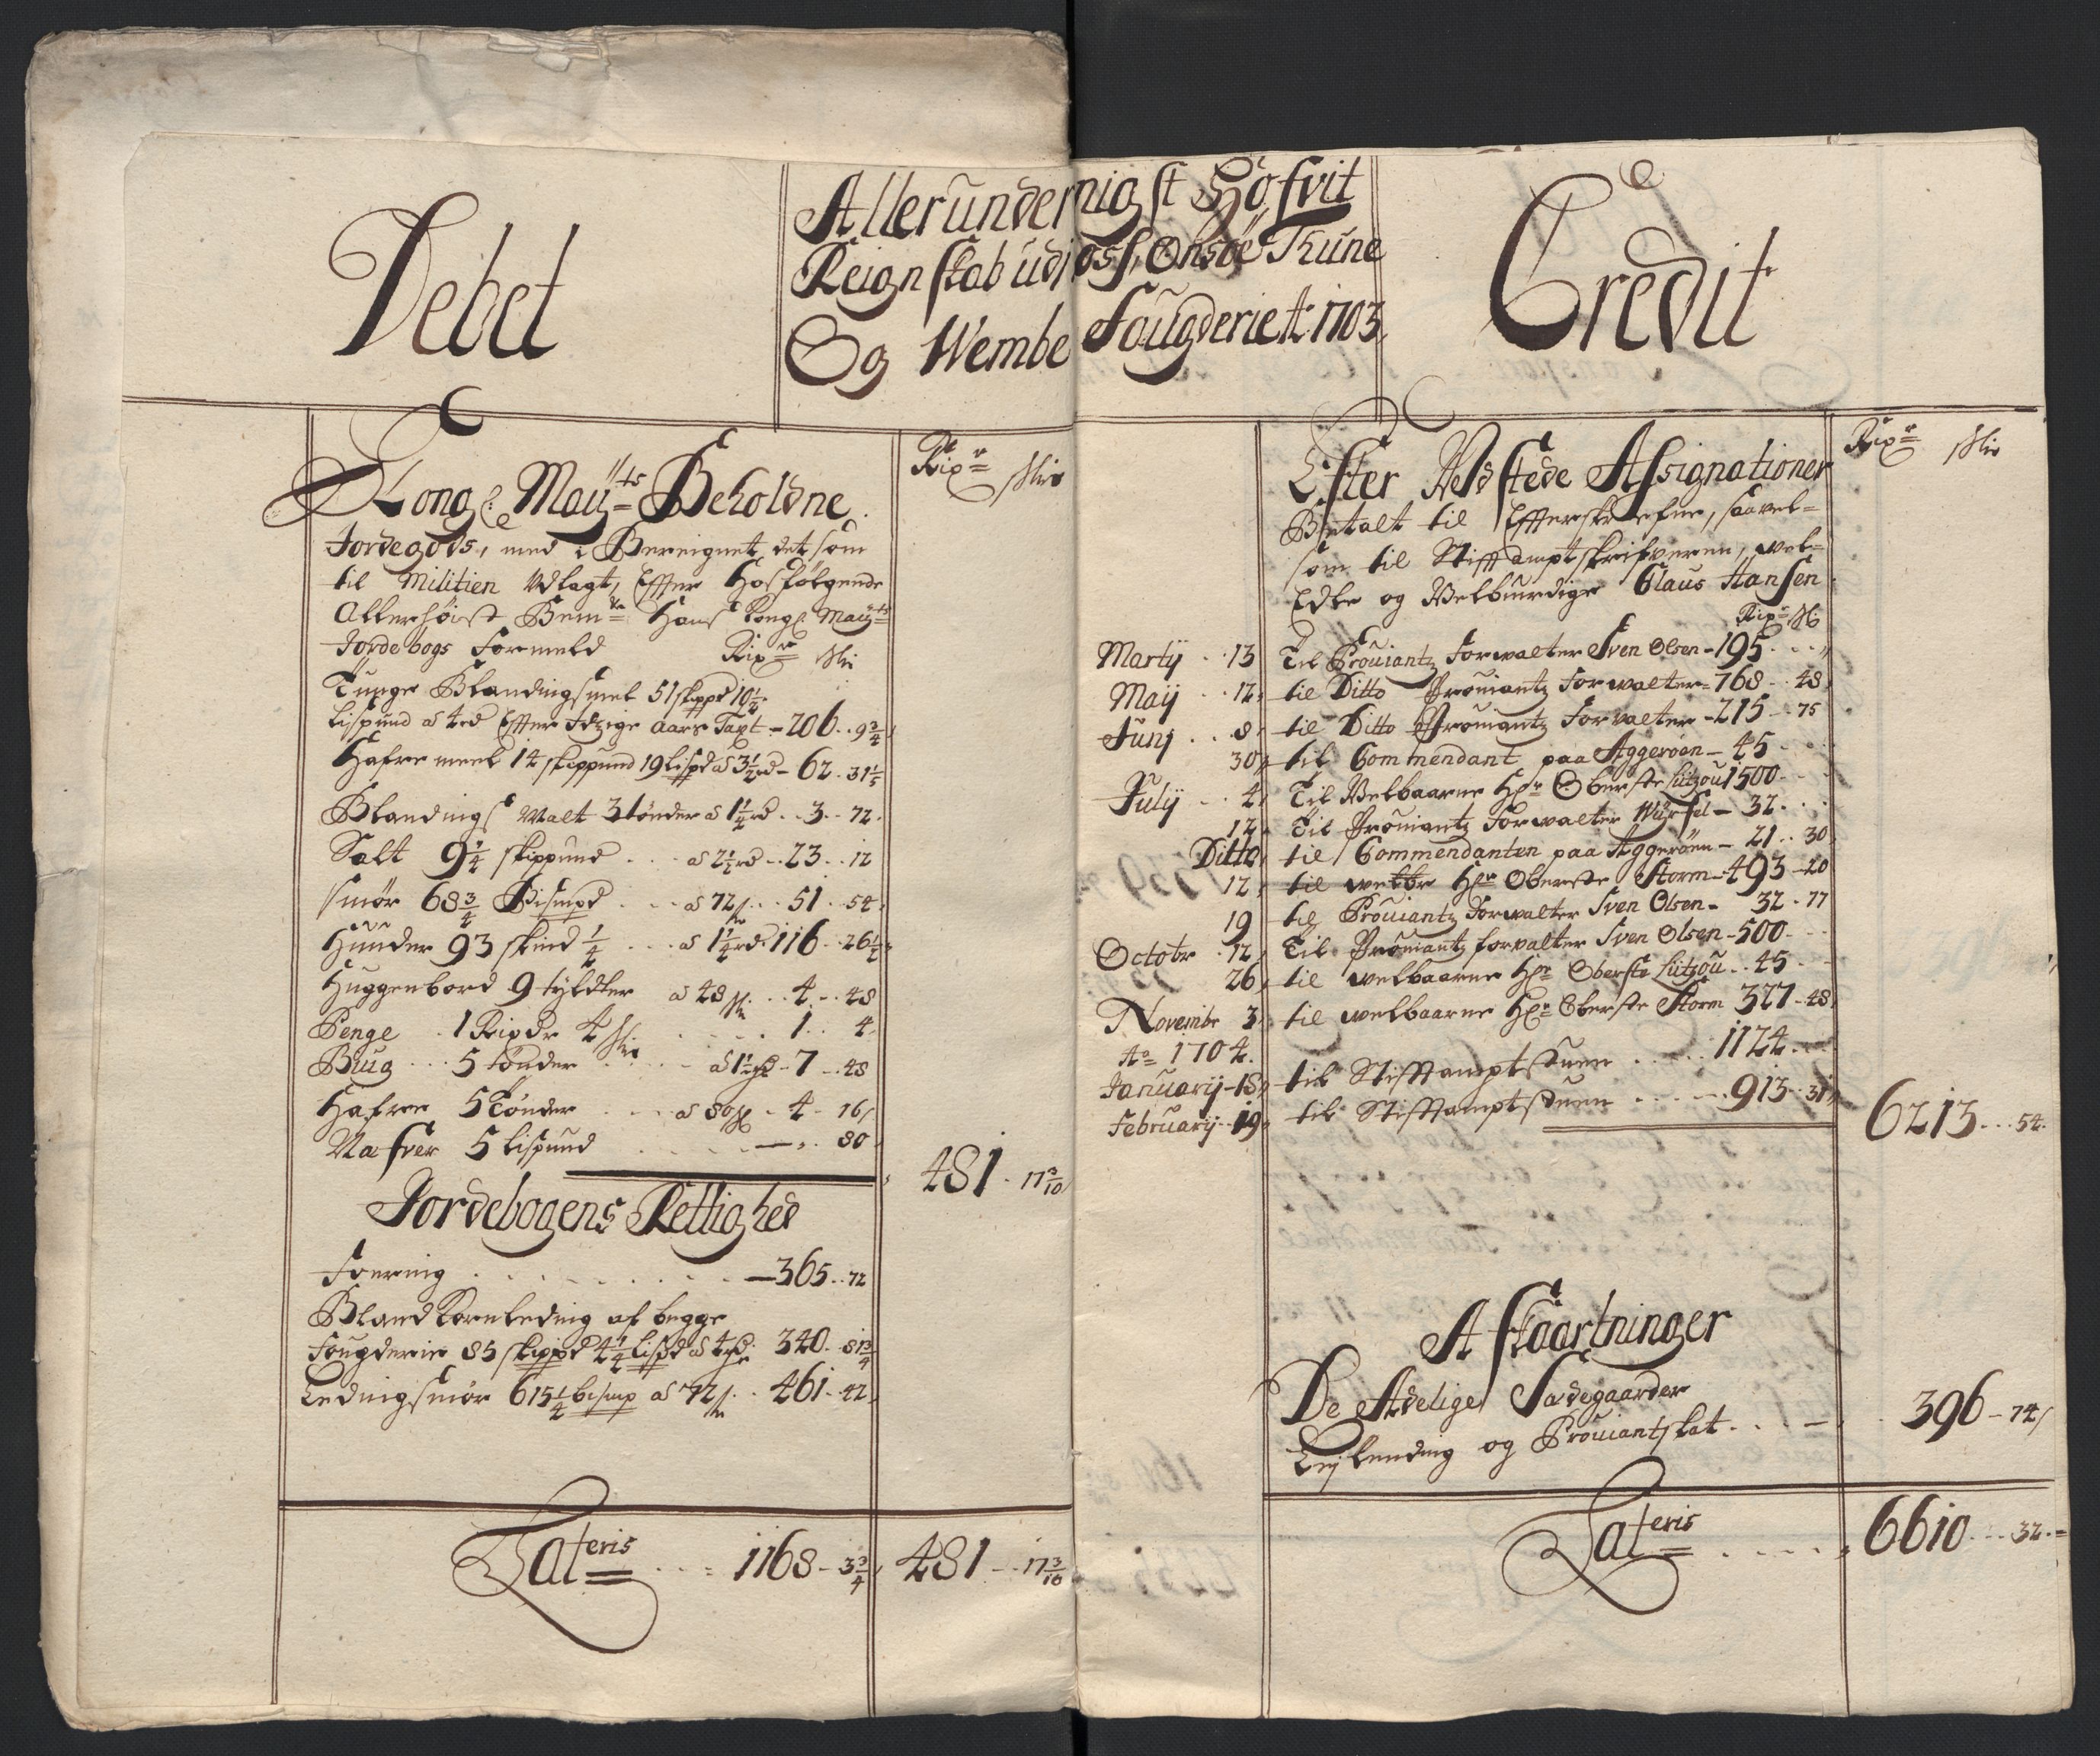 Debet
Allerunderdnigst Hofvit
Reignskab udj Moss, Onsøe Thune
Og Wembe Fougderiet: 1703
Credit
Kongl: Mayts Beholdne
Ripr Skis
Jordegods, med i Bereignet det som
til Militien Udlagt, Effter Hosfølgende
Allerhöist Bemte Hans Kongl Mayts
Jordebogs Formeld Rixr Skis
Tunge Blandingsmel 51 skippd 10 1/4
lispund a 4 rd Effter Itzige aars Taxt - 206 .. 9 3/4
Hafremeel 14 skippund 19 lispd a 3 1/2 rd - 62 . 31 1/5
Blandings Malt 3 tønder a 1 1/4 rd .. 3 .. 72
Salt 9 1/4 skippund ... a 2 1/2 rd .. 23 .. 12
Smör 68 3/4 Bismpd ... a 72 s ... 51 .. 54
Hunder 93 skind 1/4 ... a 1 1/4 rd 116 .. 26 1/2
Huggenbord 9 tyldter a 48 s ... 4 .. 48
Penge . 1 Rixdr 4 skis ... 1 .. 4
Biug ... 5 tønder ... a 1 1/2 rd - 7 - 48
Hafre 5 Tönder ... a 80 s - 4 - 16
Nafver 5 lispund ... — 80
481 . 17 3/10
Jordebogens Rettighed
Foering ... 365 .. 72
Bland Kornleding af begge
Fougderie 85 skippd 4 1/4 lispd a 4 rd 340 . 81 3/4
Ledingsmör 615 1/4 bismp a 72 s .. 461 - 42
Lateris ... 1168 - 3 3/4 481 - 17 3/10
Efter Udstede Assignationer
Ripr Skis
Betalt til Effterskrefne, saavel-
som til Stifftamptskrifveren, vel-
Edle og Velbiurdige Claus Hansen
Rixr Sk
Martij .. 13 Til Prouiantz Forwalter Sven Olsen - 195 ...
Maij ... 12 til Ditto Prouiantz Forwalter - 768 .. 48
Junj ... 8 til Ditto Prouiantz Forwalter - 215 .. 75
30 til Commendant paa Aggerøen - 45
Julij .. 4 Til Velbaarne Hr Oberste Lützou 1500
12 Til Prouiantz Forwalter Würfel - 32
Ditto til Commendanten paa Aggerøen - 21 .. 30
12 til welbr Hr Oberste Storm - 493 - 20
19 til Prouiantz Forwalter Sven Olsen - 32 - 77
Octobr . 12 Til Prouiantz forvalter Sven Olsen - 500
26 til welbaarne Hr Oberste Lützou .. 45
Novembr 3 til welbaarne Hr Oberste Storm 327 - 48
Ao 1704.
Januarij - 18 til Stifftamptstuen ... 1124
Februarij . 19 til Stifftamptstuen ... 913 . 31
6213 ... 54
Afkaartninger
De Adelige Sædegaarder
Leylending og Prouiantskat ... 396 - 74
Lateris ... 6610 ... 32